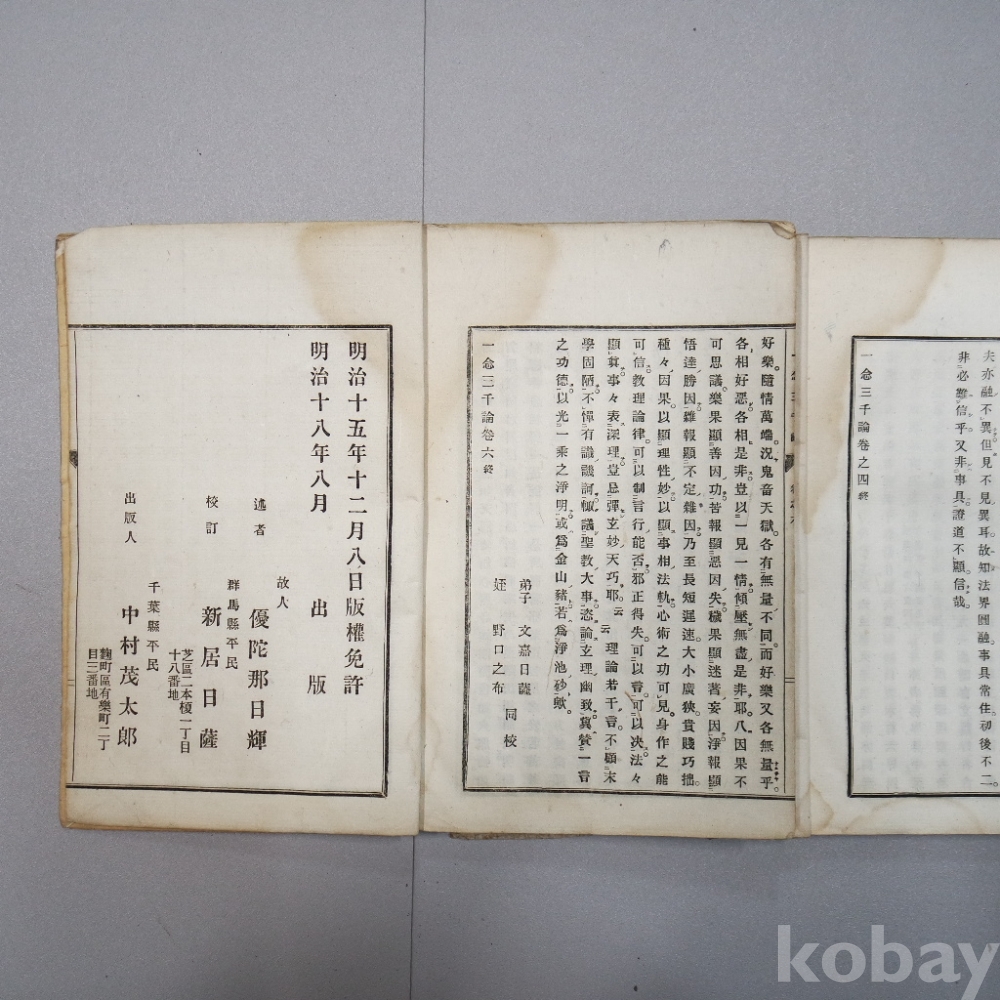 夫亦融不異但見不見異耳故知法界圓融事具常住初後不二。
非必難信乎又非事具證道不顯信哉。
一念三千論卷之四終
好樂隨情萬端。況鬼音天獄。各有無量不同。而好樂又各無量乎。
各相好惡各相是非。豈以一見一情傾壓無盡是非耶。八因果不
可思議。樂果顯善因功。苦報顯惡因失。穢果顯迷著妄因。淨報顯
悟達勝因。雜報顯不定雜因。乃至長短遲速。大小廣狹。貴賤巧拙。
種々因果。以顯理性妙。以顯事相法軌。心術之功可見。身作之能
可信。教理論律。可以制言行能否。邪正得失。可以嘗。可以决法々
顯眞。事々表深理。豈忌彈玄妙天巧耶。云云理論若干言。不顧末
學固陋。不憚有識譏訶。輙議聖教大事。恣論玄理幽致。冀賛一言
之功德。以光一乘之淨明。或爲金山豬。若爲淨池砂歟。
弟子 文嘉日薩
姪 野口之布
同校
一念三千論卷六終
明治十五年十二月八日版權免許
明治十八年八月 出版
故人
述者 優陀那日輝
群馬縣平民
校訂 新居日薩
芝區二本榎一丁目
十八番地
千葉縣平民
出版人 中村茂太郎
麴町區有樂町二丁
目三番地
kobay